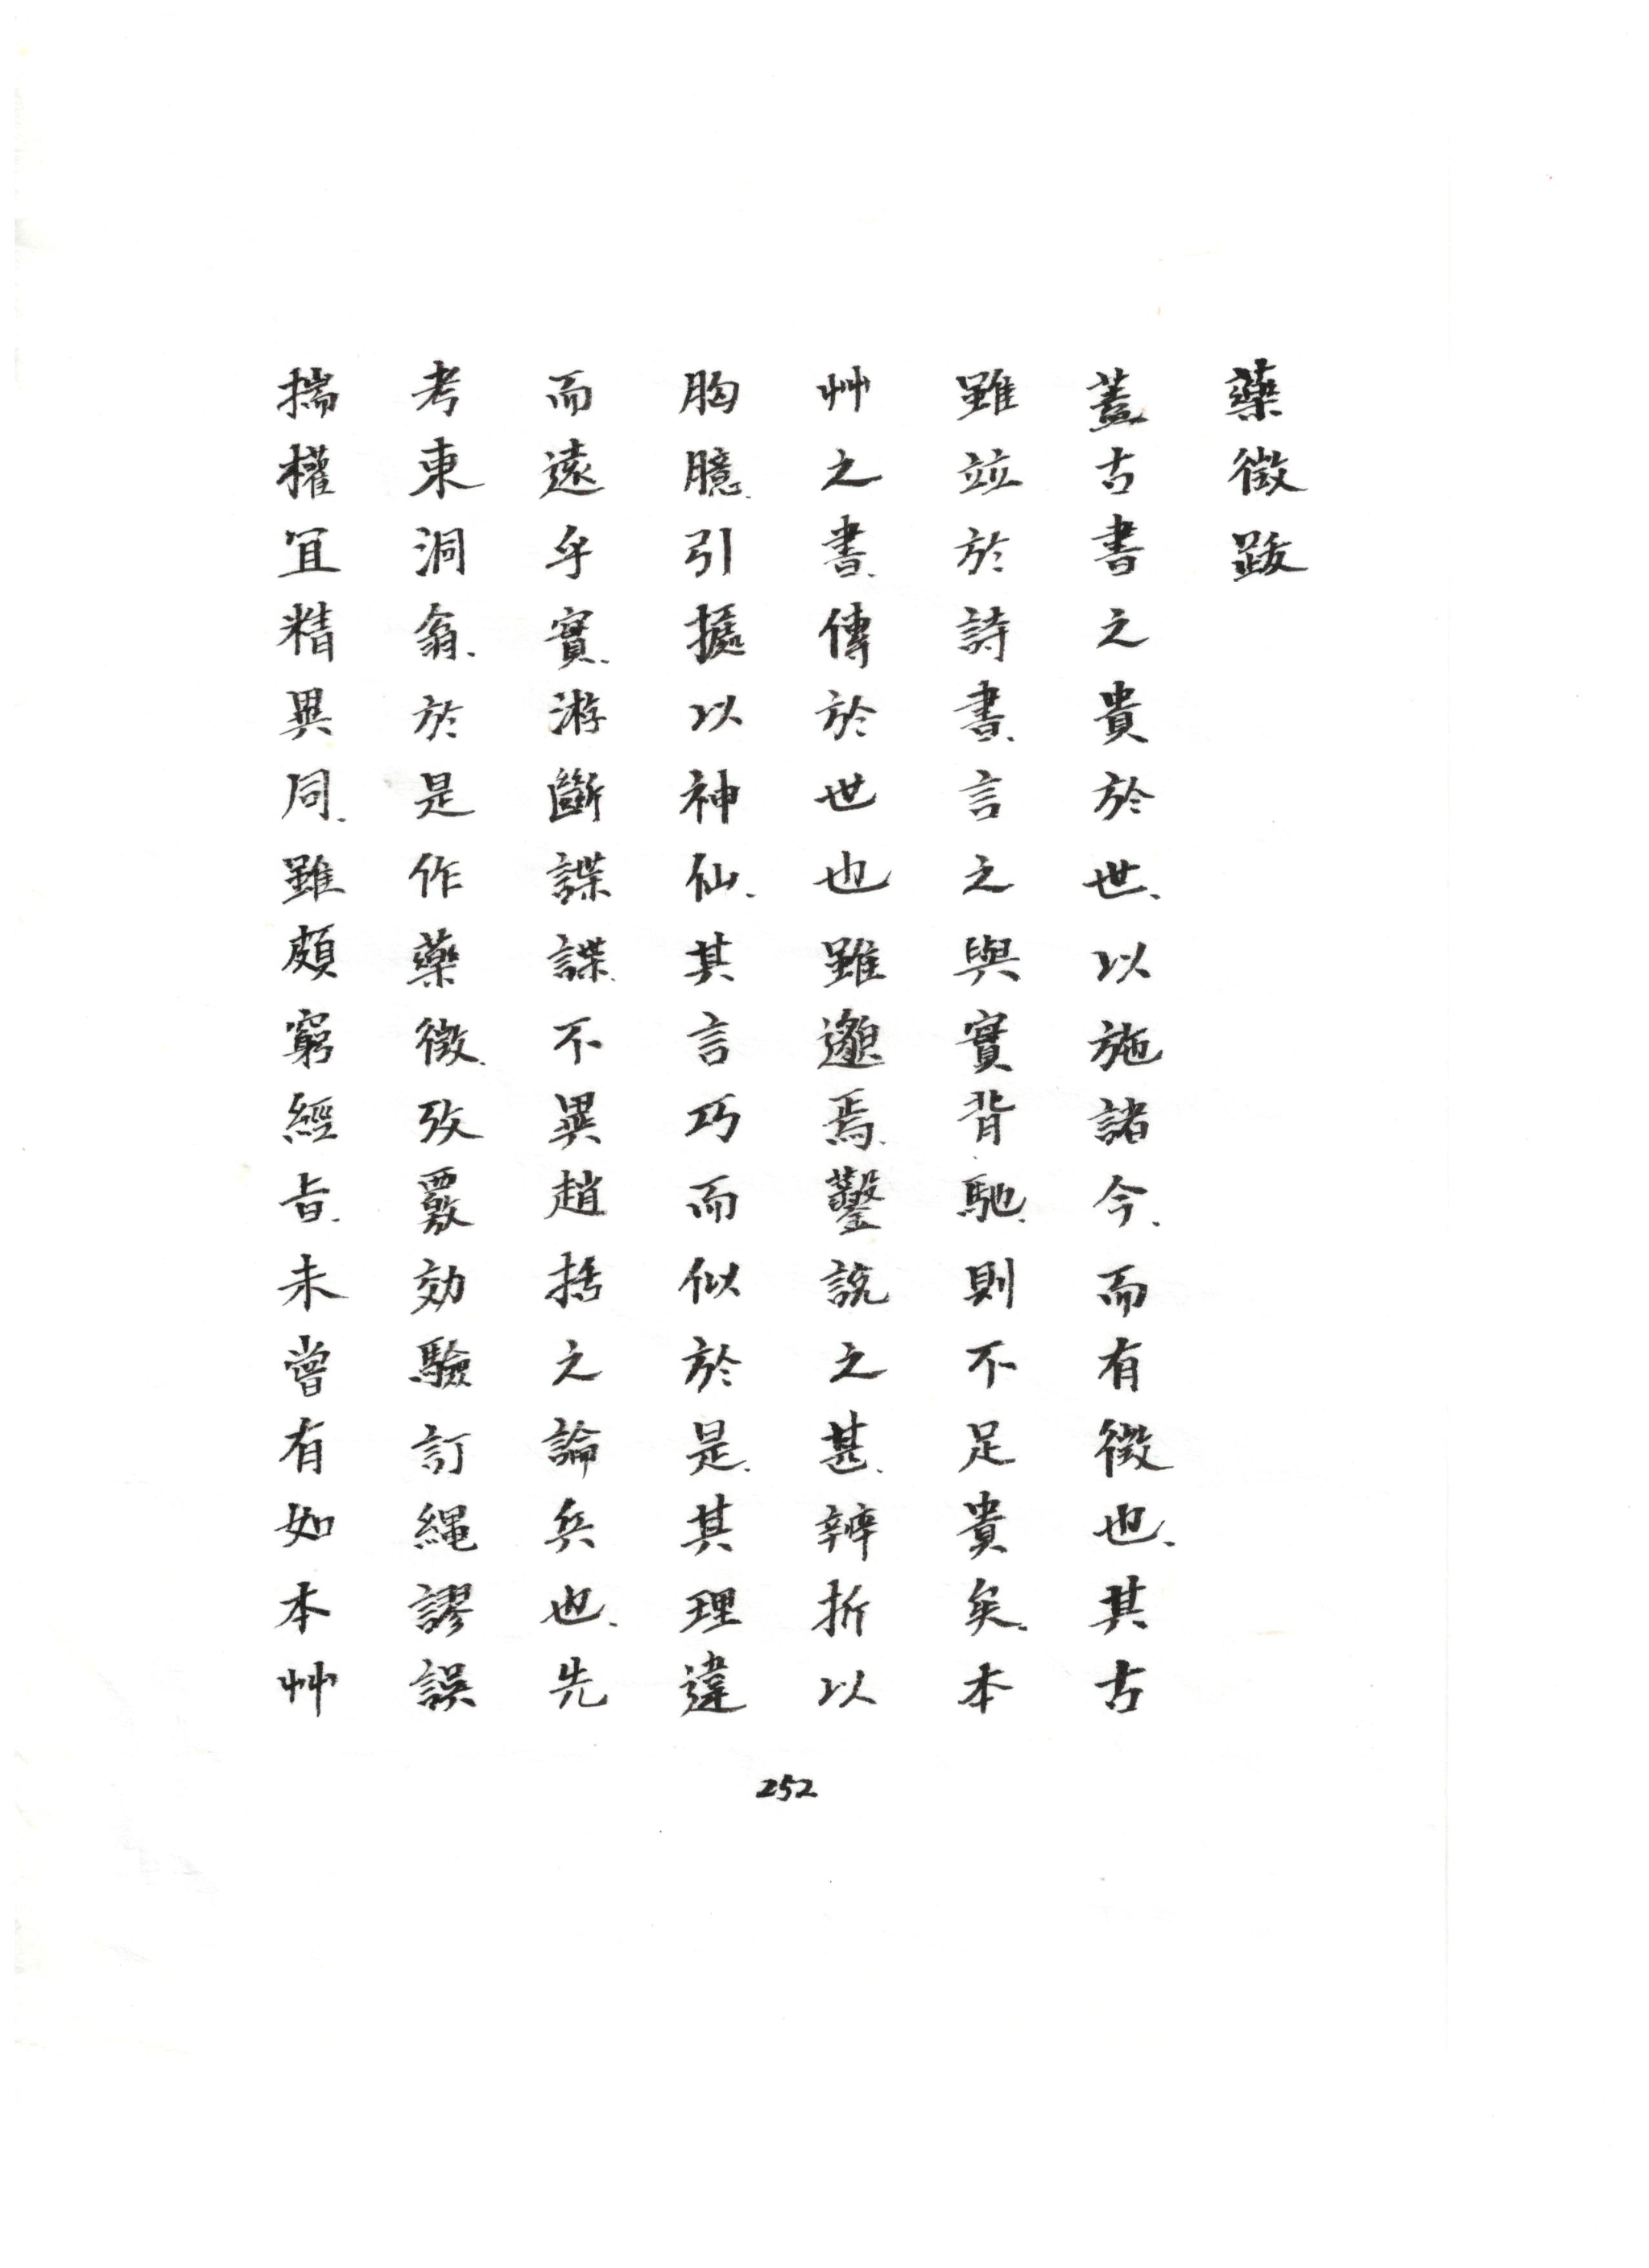 藥徵跋
蓋古書之貴於世、以施諸今、而有徵也、其古
雖竝於詩書、言之與實背馳、則不足貴矣、本
艸之書、傳於世也雖邈焉、鑿說之甚、辨折以
胸臆、引據以神仙、其言巧而似於是、其理違
而遠乎實、游斷諜諜、不異趙括之論兵也、先
考東洞翁、於是作藥徵、攷覈効驗訂繩謬誤
揣權宜精異同、雖頗窮經旨、未嘗有如本艸
252